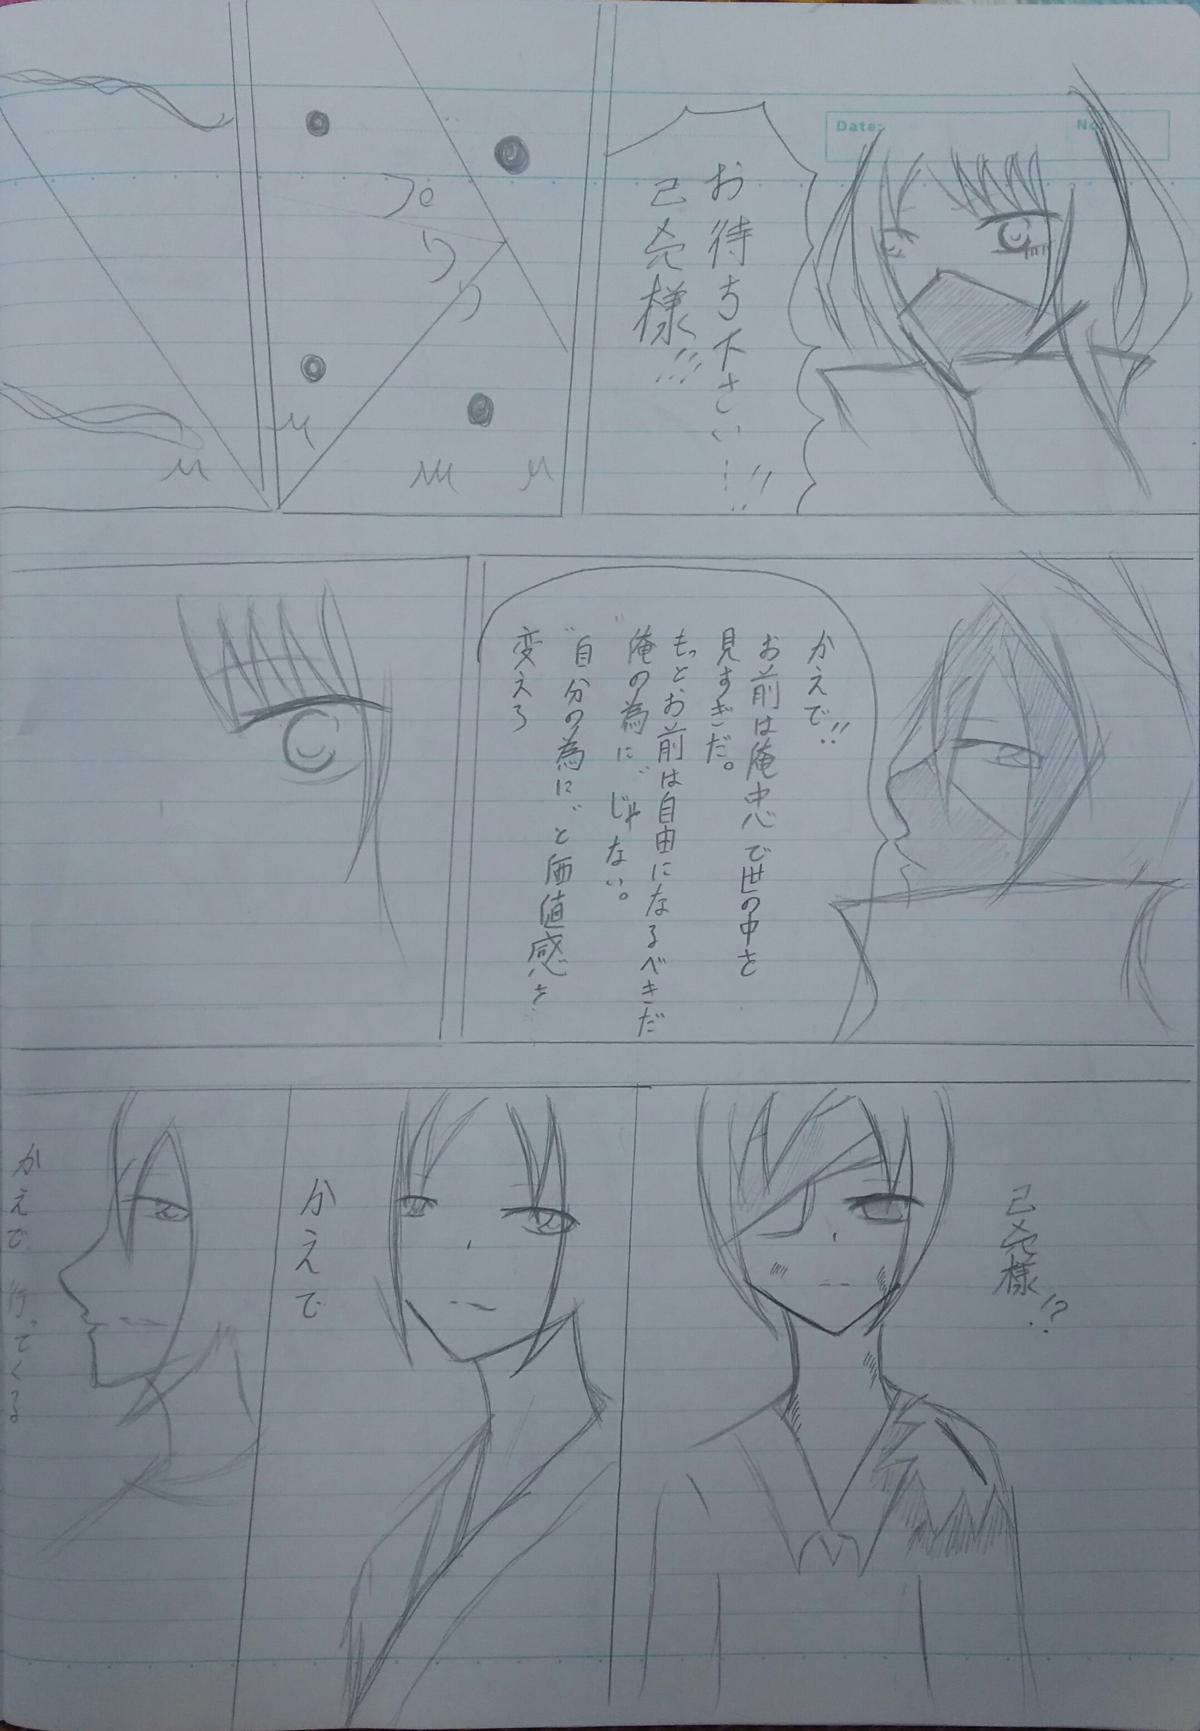 Date:
No.
お待ち下さい…!!
己 様!!!
プ
かえで!!
お前は俺忠心で世の中を
見すぎだ。
もっとお前は自由になるべきだ
"俺の為に"じゃない。
"自分の為に"と価値感を
変えろ
己 様!?
かえで
かえで 行ってくる